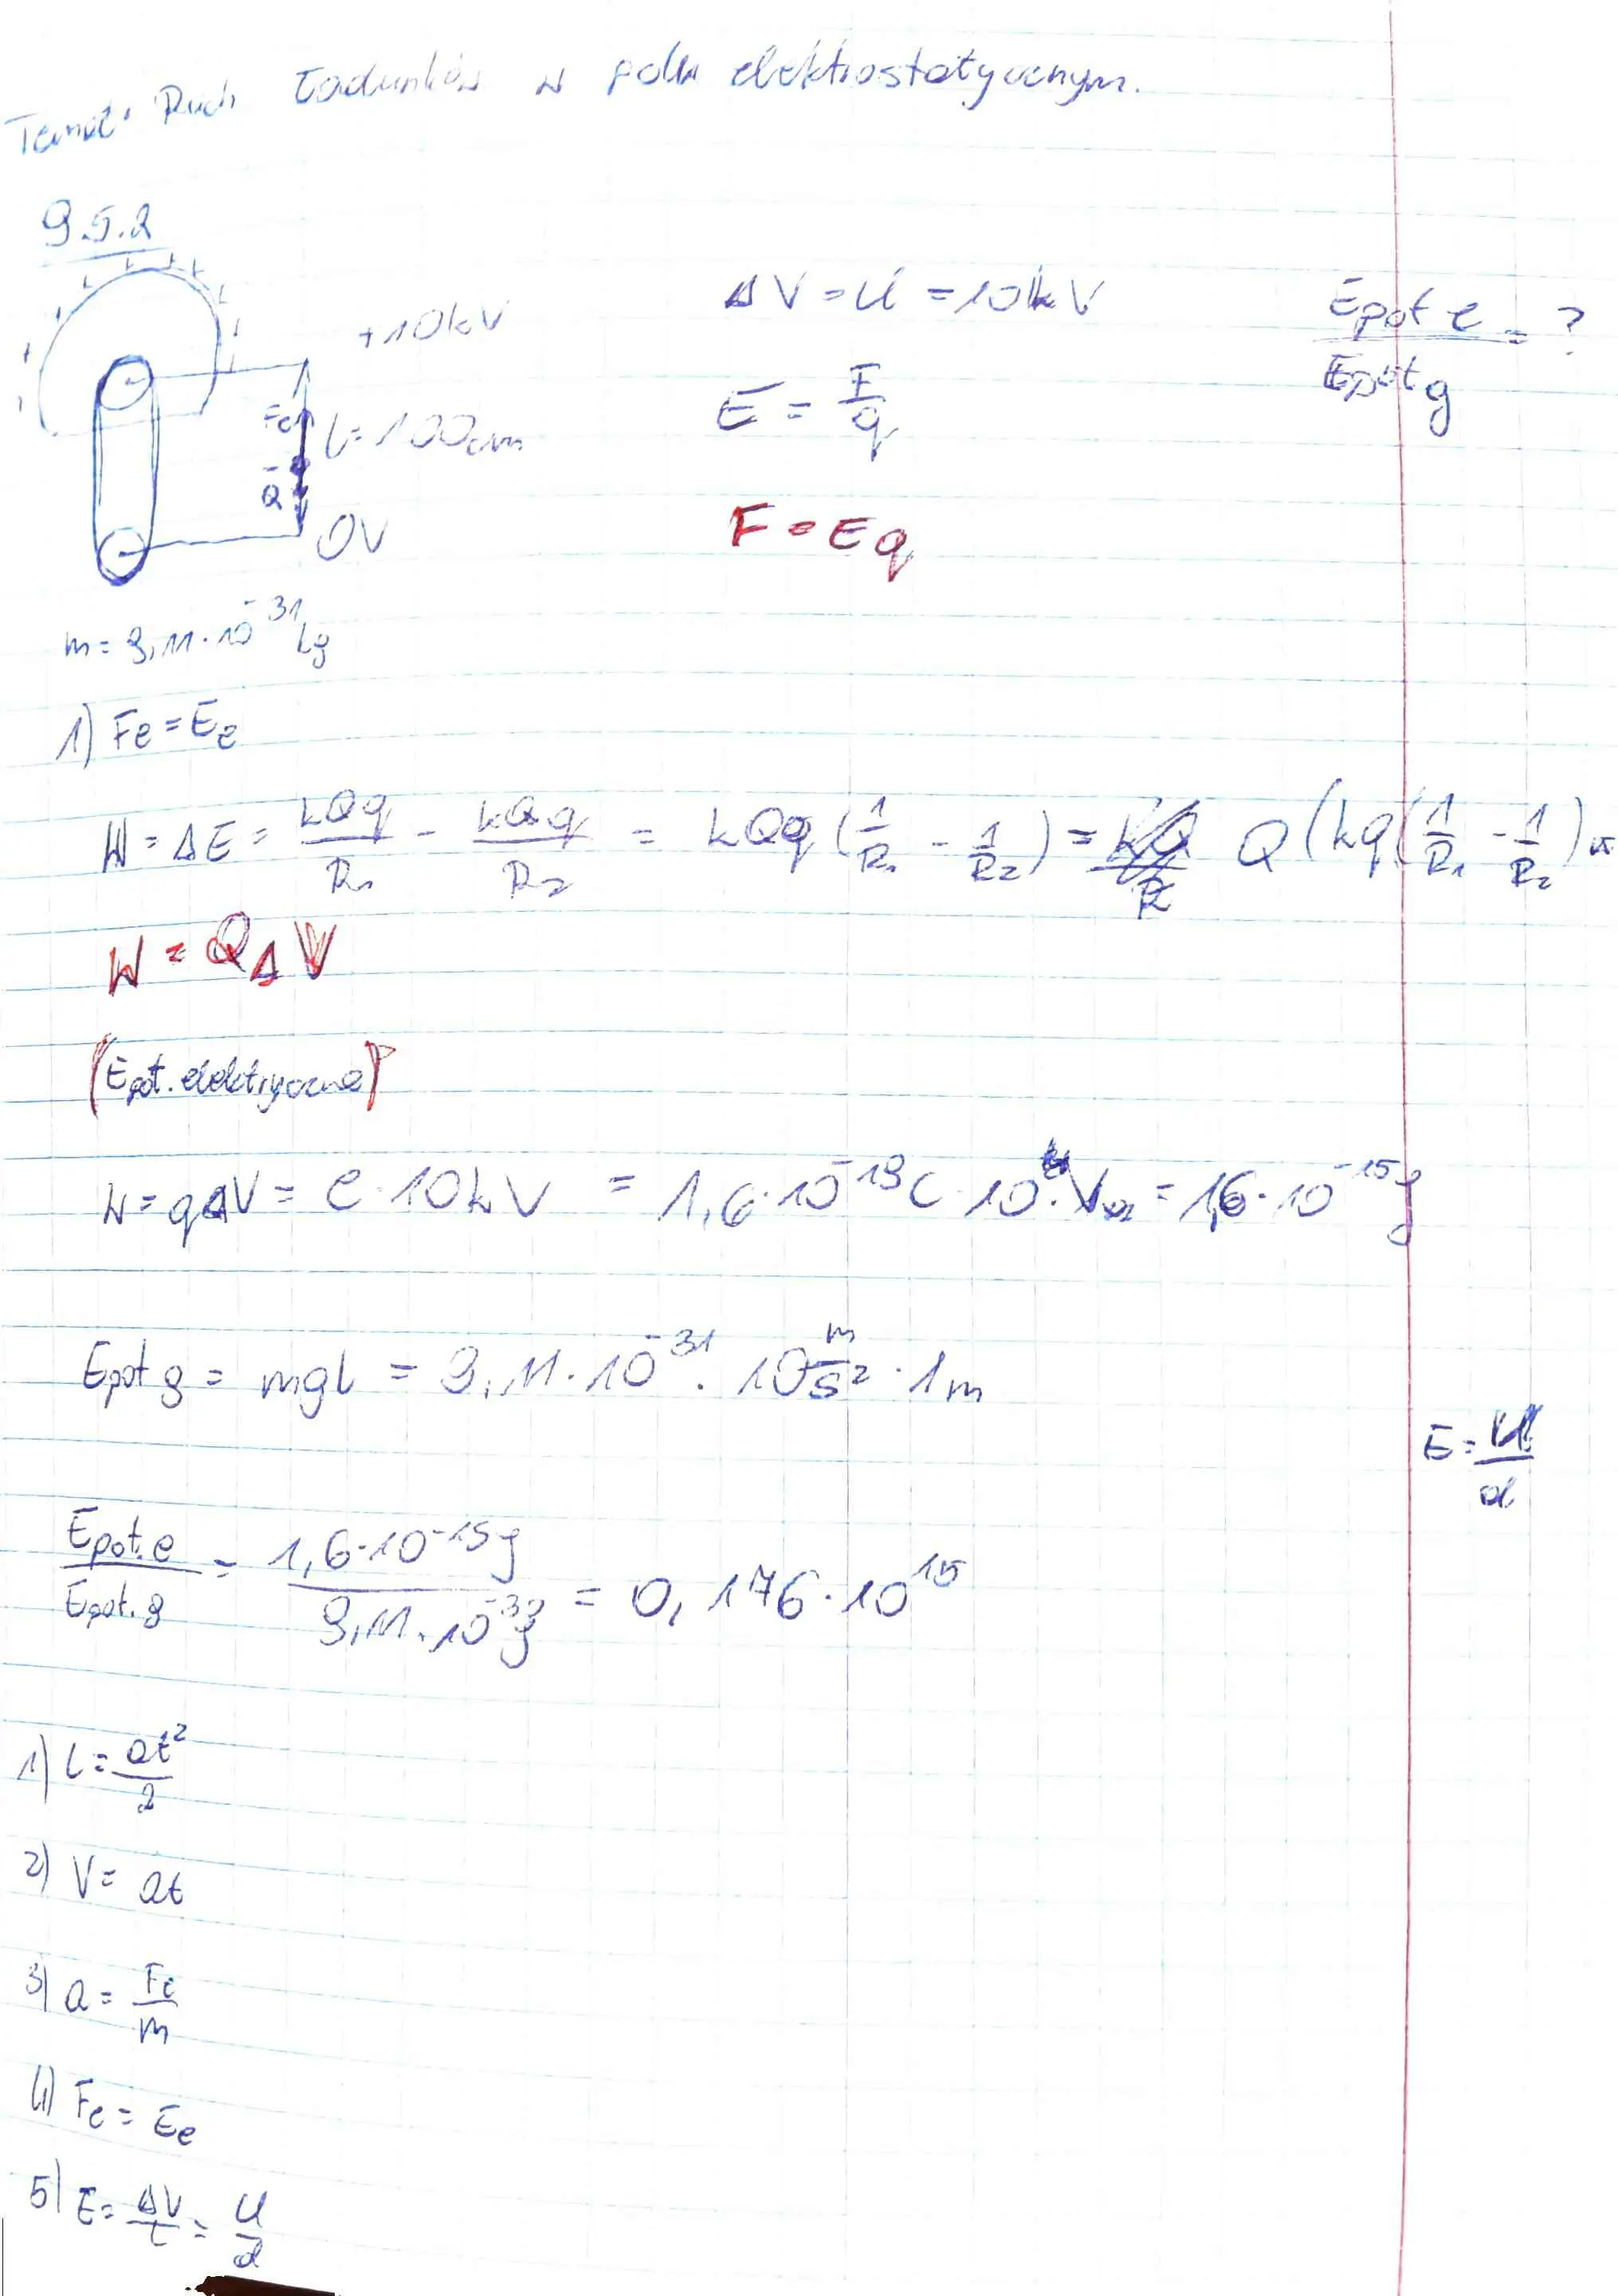 Temat: Ruch ładunków w polu elektrostatycznym.
9.5.2
+10kV
ΔV = U = 10kV
Epot e / Epot g = ?
Fe
l = 100cm
E = F/q
-
Q
0V
F = Eq
m = 9,11·10^-31 kg
1) Fe = Ee
W = ΔE = kQq/R₁ - kQq/R₂ = kQq (1/R₁ - 1/R₂) = Q (kq(1/R₁ - 1/R₂)
W = QΔV
(Epot. elektryczna)
W = qΔV = e·10kV = 1,6·10^-19 C · 10^4 · V = 1,6·10^-15 J
Epot g = mgl = 9,11·10^-31 · 10 m/s² · 1m
E = U/d
Epot.e / Epot.g = 1,6·10^-15 J / 9,11·10^-30 J = 0,176·10^15
1) l = at²/2
2) V = at
3) a = Fe/m
4) Fe = Ee
5) E = ΔV/l = U/d